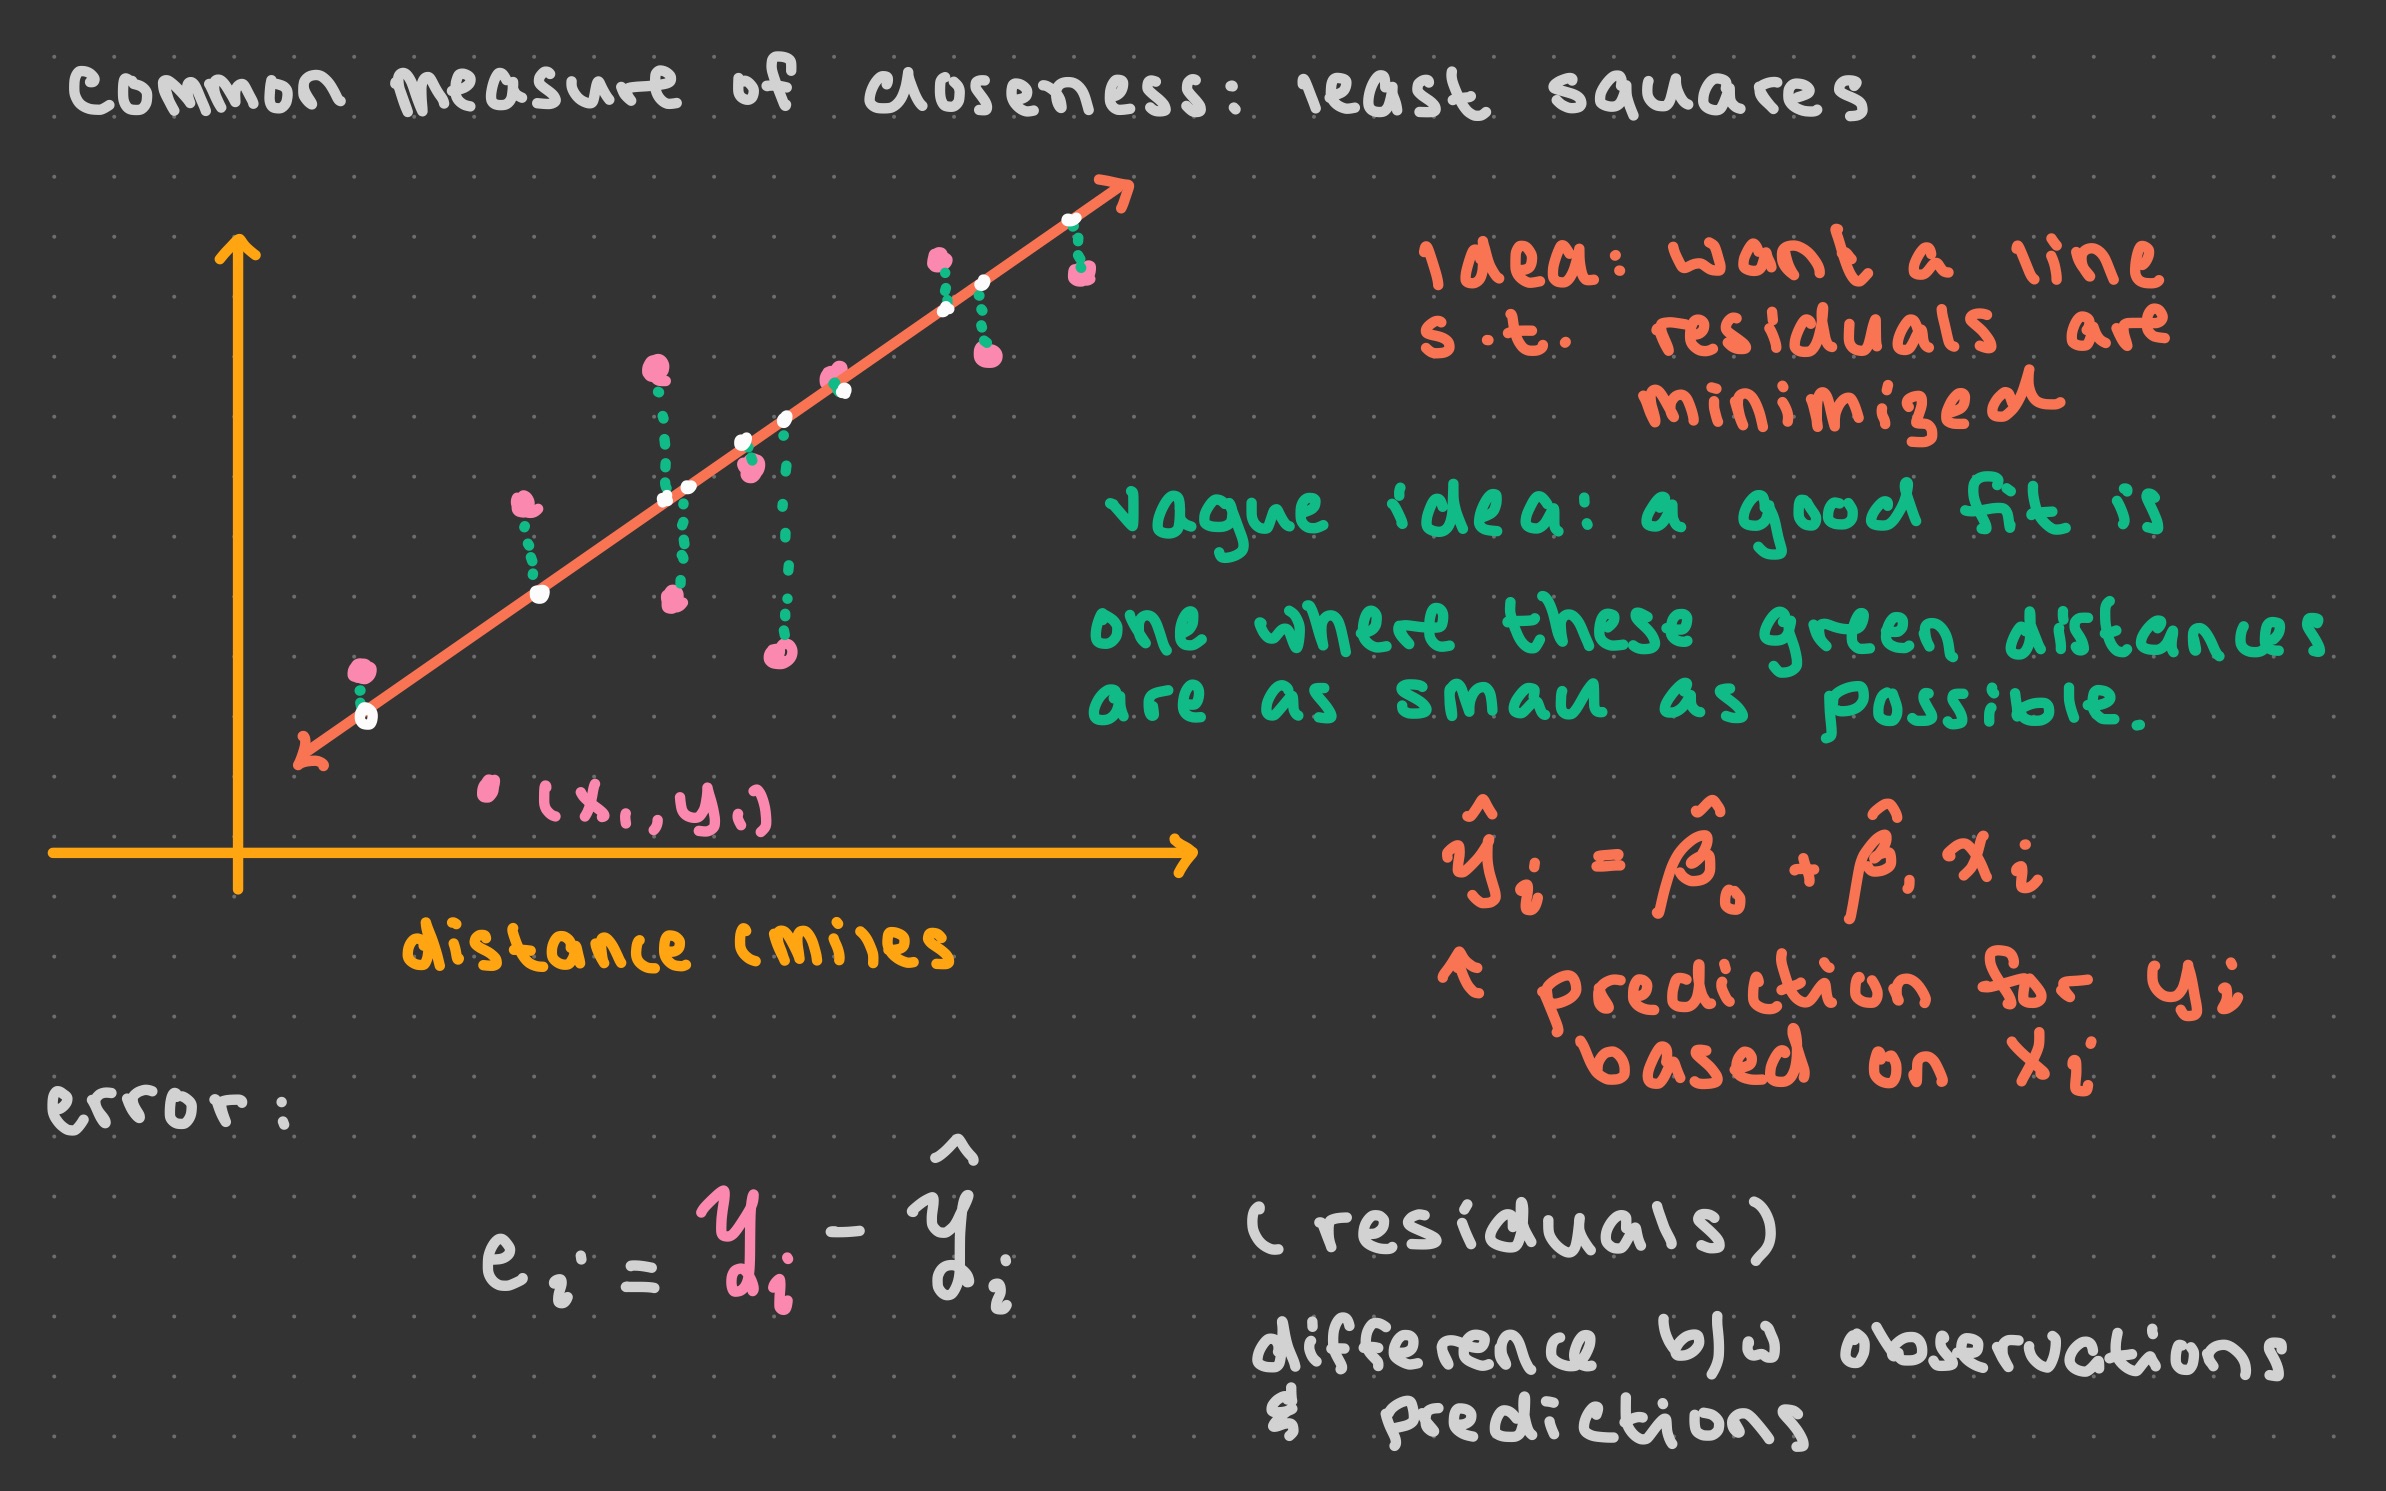 common measure of closeness: least squares
idea: want a line
s.t. residuals are
minimized
vague idea: a good fit is
one where these green distances
are as small as possible.
(x₁, y₁)
ŷᵢ = β̂₀ + β̂₁ xᵢ
↑ prediction for yᵢ
based on xᵢ
distance (miles
error:
eᵢ = yᵢ - ŷᵢ
(residuals)
difference b/w observations
& predictions